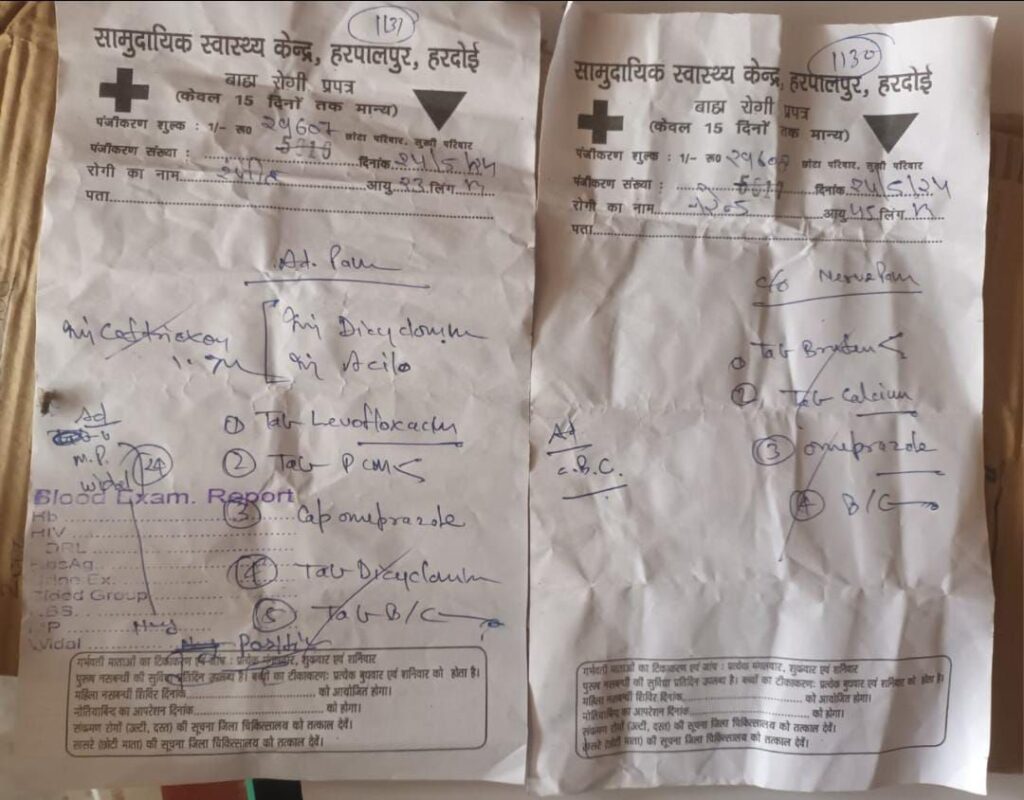 1131
सामुदायिक स्वास्थ्य केन्द्र, हरपालपुर, हरदोई
बाह्य रोगी प्रपत्र
(केवल 15 दिनों तक मान्य)
पंजीकरण शुल्क : 1/- रू० 29607 छोटा परिवार, सुखी परिवार
पंजीकरण संख्या : 5616 दिनांक 24/5/24
रोगी का नाम आयु 23 लिंग M
पता
Ad. Pain
Inj Ceftriaxon
Inj Dicyclomin
Inj Acilo
① Tab Levofloxacin
Ad
② Tab PCM
M.P.
Widal
24
Blood Exam. Report
Hb
③ Cap omeprazole
HIV
HbsAg
④ Tab Dicyclomin
Urine Ex.
Blood Group
⑤ Tab B/C
Neg
Widal Positiv
गर्भवती माताओं का टीकाकरण एवं जांच : प्रत्येक मंगलवार, शुक्रवार एवं शनिवार
पुरूष नसबन्दी की सुविधा प्रतिदिन उपलब्ध है। बच्चों का टीकाकरण: प्रत्येक बुधवार एवं शनिवार को होता है।
महिला नसबन्दी शिविर दिनांक को आयोजित होगा।
मोतियाबिन्द का आपरेशन दिनांक को होगा।
संक्रमण रोगों (उल्टी, दस्त) की सूचना जिला चिकित्सालय को तत्काल देवें।
खसरे (छोटी माता) की सूचना जिला चिकित्सालय को तत्काल देवें।
1130
सामुदायिक स्वास्थ्य केन्द्र, हरपालपुर, हरदोई
बाह्य रोगी प्रपत्र
(केवल 15 दिनों तक मान्य)
पंजीकरण शुल्क : 1/- रू० छोटा परिवार, सुखी परिवार
पंजीकरण संख्या : दिनांक 24/5/24
रोगी का नाम आयु 45 लिंग M
पता
c/o Nerve Pain
① Tab
② Tab Calcium
Ad
C.B.C.
③ omeprazole
④ B/C
गर्भवती माताओं का टीकाकरण एवं जांच : प्रत्येक मंगलवार, शुक्रवार एवं शनिवार
पुरूष नसबन्दी की सुविधा प्रतिदिन उपलब्ध है। बच्चों का टीकाकरण: प्रत्येक बुधवार एवं शनिवार को होता है।
महिला नसबन्दी शिविर दिनांक को आयोजित होगा।
मोतियाबिन्द का आपरेशन दिनांक को होगा।
संक्रमण रोगों (उल्टी, दस्त) की सूचना जिला चिकित्सालय को तत्काल देवें।
खसरे (छोटी माता) की सूचना जिला चिकित्सालय को तत्काल देवें।